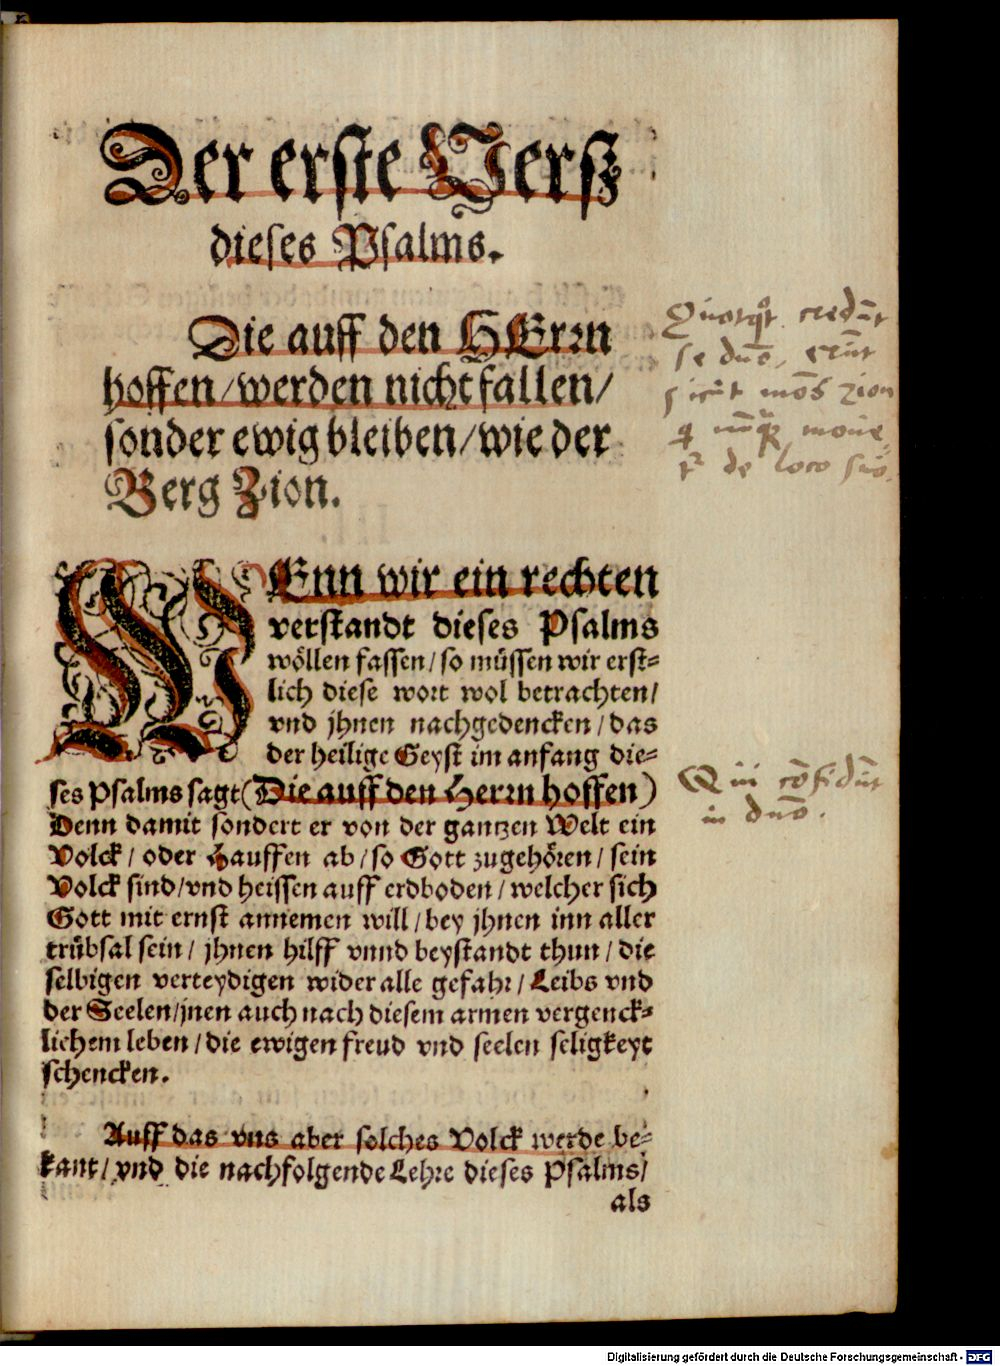 Der erste Verß
dieses Psalms.
Die auff den HErrn
hoffen/werden nicht fallen/
sonder ewig bleiben/wie der
Berg Zion.
WEnn wir ein rechten
verstandt dieses Psalms
wöllen fassen/so müssen wir erst=
lich diese wort wol betrachten/
vnd jhnen nachgedencken/das
der heilige Geyst im anfang die=
ses Psalms sagt(Die auff den Herrn hoffen)
Denn damit sondert er von der gantzen Welt ein
Volck/oder Hauffen ab/so Gott zugehören/sein
Volck sind/vnd heissen auff erdboden/welcher sich
Gott mit ernst annemen will/bey jhnen inn aller
trübsal sein/jhnen hilff vnnd beystandt thun/die
selbigen verteydigen wider alle gefahr/Leibs vnd
der Seelen/jnen auch nach diesem armen vergenck=
lichem leben/die ewigen freud vnd seelen seligkeyt
schencken.
Auff das vns aber solches Volck werde be=
kant/vnd die nachfolgende Lehre dieses Psalms/
als
Quotqt credūt
se dūo, erūt
sicut mōs zion
mone
de loco suo.
Qui cōfidūt
in dūo.
Digitalisierung gefördert durch die Deutsche Forschungsgemeinschaft - DFG